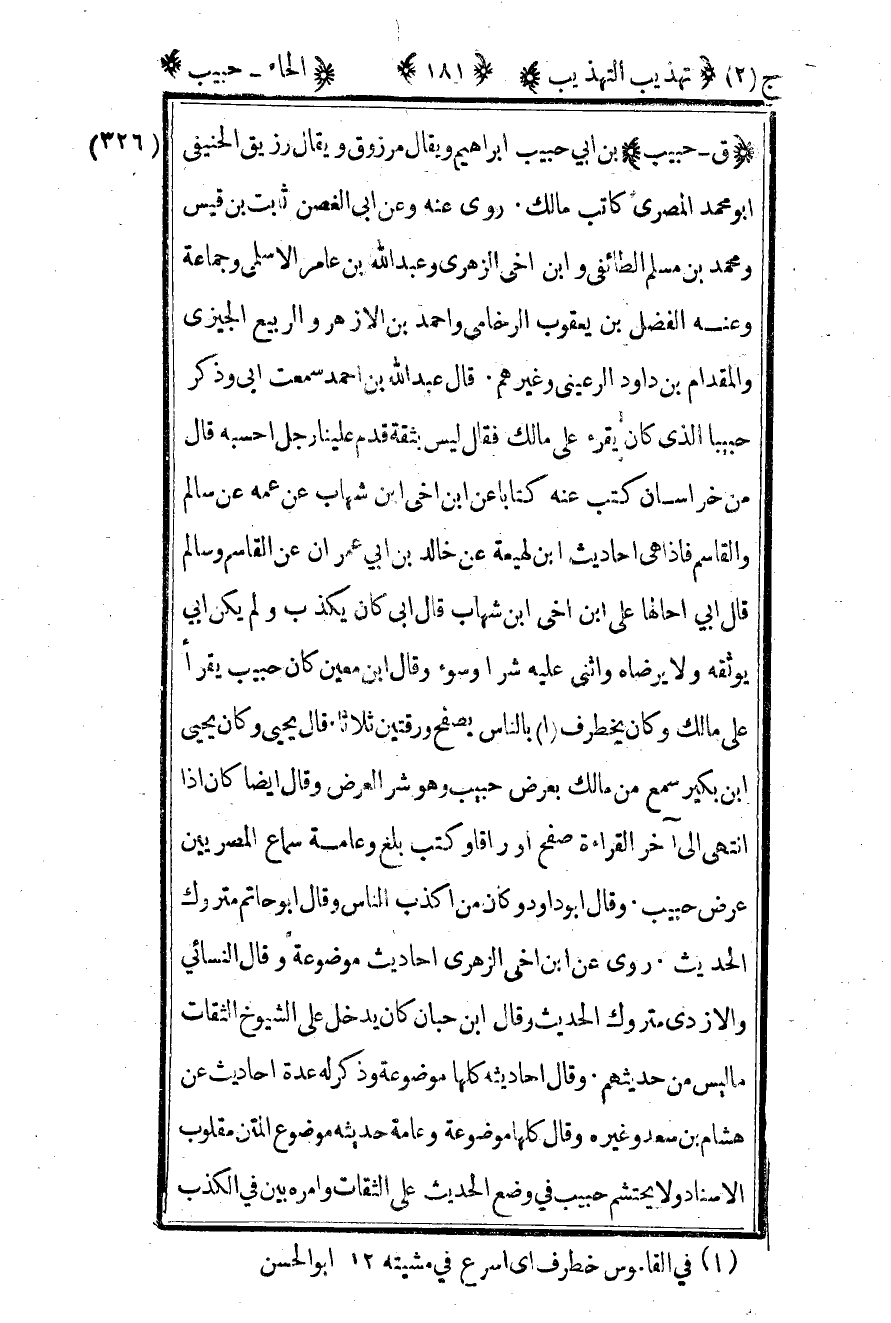 ج (٢) ﴿ تهذيب التهذيب ﴾ ﴿ ١٨١ ﴾ ﴿ الحاء ـ حبيب ﴾
﴿ ق ـ حبيب ﴾ بن ابي حبيب ابراهيم ويقال مرزوق ويقال رزيق الحنيفى (٣٢٦)
ابو محمد المصرى كاتب مالك ٠ روى عنه وعن ابى الغصن ثابت بن قيس
ومحمد بن مسلم الطائفى وابن اخى الزهرى وعبدالله بن عامر الاسلمى وجماعة
وعنـــه الفضل بن يعقوب الرخامى واحمد بن الازهر والربيع الجيزى
والمقدام بن داود الرعينى وغيرهم ٠ قال عبدالله بن احمد سمعت ابى وذكر
حبيبا الذى كان يقرء على مالك فقال ليس بثقة قدم علينا رجل احسبه قال
من خراسـان كتب عنه كتابا عن ابن اخى ابن شهاب عن عمه عن سالم
والقاسم فاذا هى احاديث ابن لهيعة عن خالد بن ابي عمران عن القاسم وسالم
قال ابي احالها على ابن اخى ابن شهاب قال ابى كان يكذب ولم يكن ابي
يوثقه ولا يرضاه واثنى عليه شرا وسوء وقال ابن معين كان حبيب يقرأ
على مالك وكان يخطرف (١) بالناس يصفح ورقتين ثلاثا ٠ قال يحيى وكان يحيى
ابن بكير سمع من مالك بعرض حبيب وهو شر العرض وقال ايضا كان اذا
انتهى الى آخر القراءة صفح اوراقا وكتب بلغ وعامـة سماع المصريين
عرض حبيب ٠ وقال ابو داود وكان من اكذب الناس وقال ابو حاتم متروك
الحديث ٠ روى عن ابن اخى الزهرى احاديث موضوعة وقال النسائي
والازدى متروك الحديث وقال ابن حبان كان يدخل على الشيوخ الثقات
ماليس من حديثهم ٠ وقال احاديثه كلها موضوعة وذكر له عدة احاديث عن
هشام بن سعد وغيره وقال كلها موضوعة وعامة حديثه موضوع المتن مقلوب
الاسناد ولا يحتشم حبيب في وضع الحديث على الثقات وامره بين في الكذب
(١) في القاموس خطرف اى اسرع في مشيته ١٢ ابو الحسن